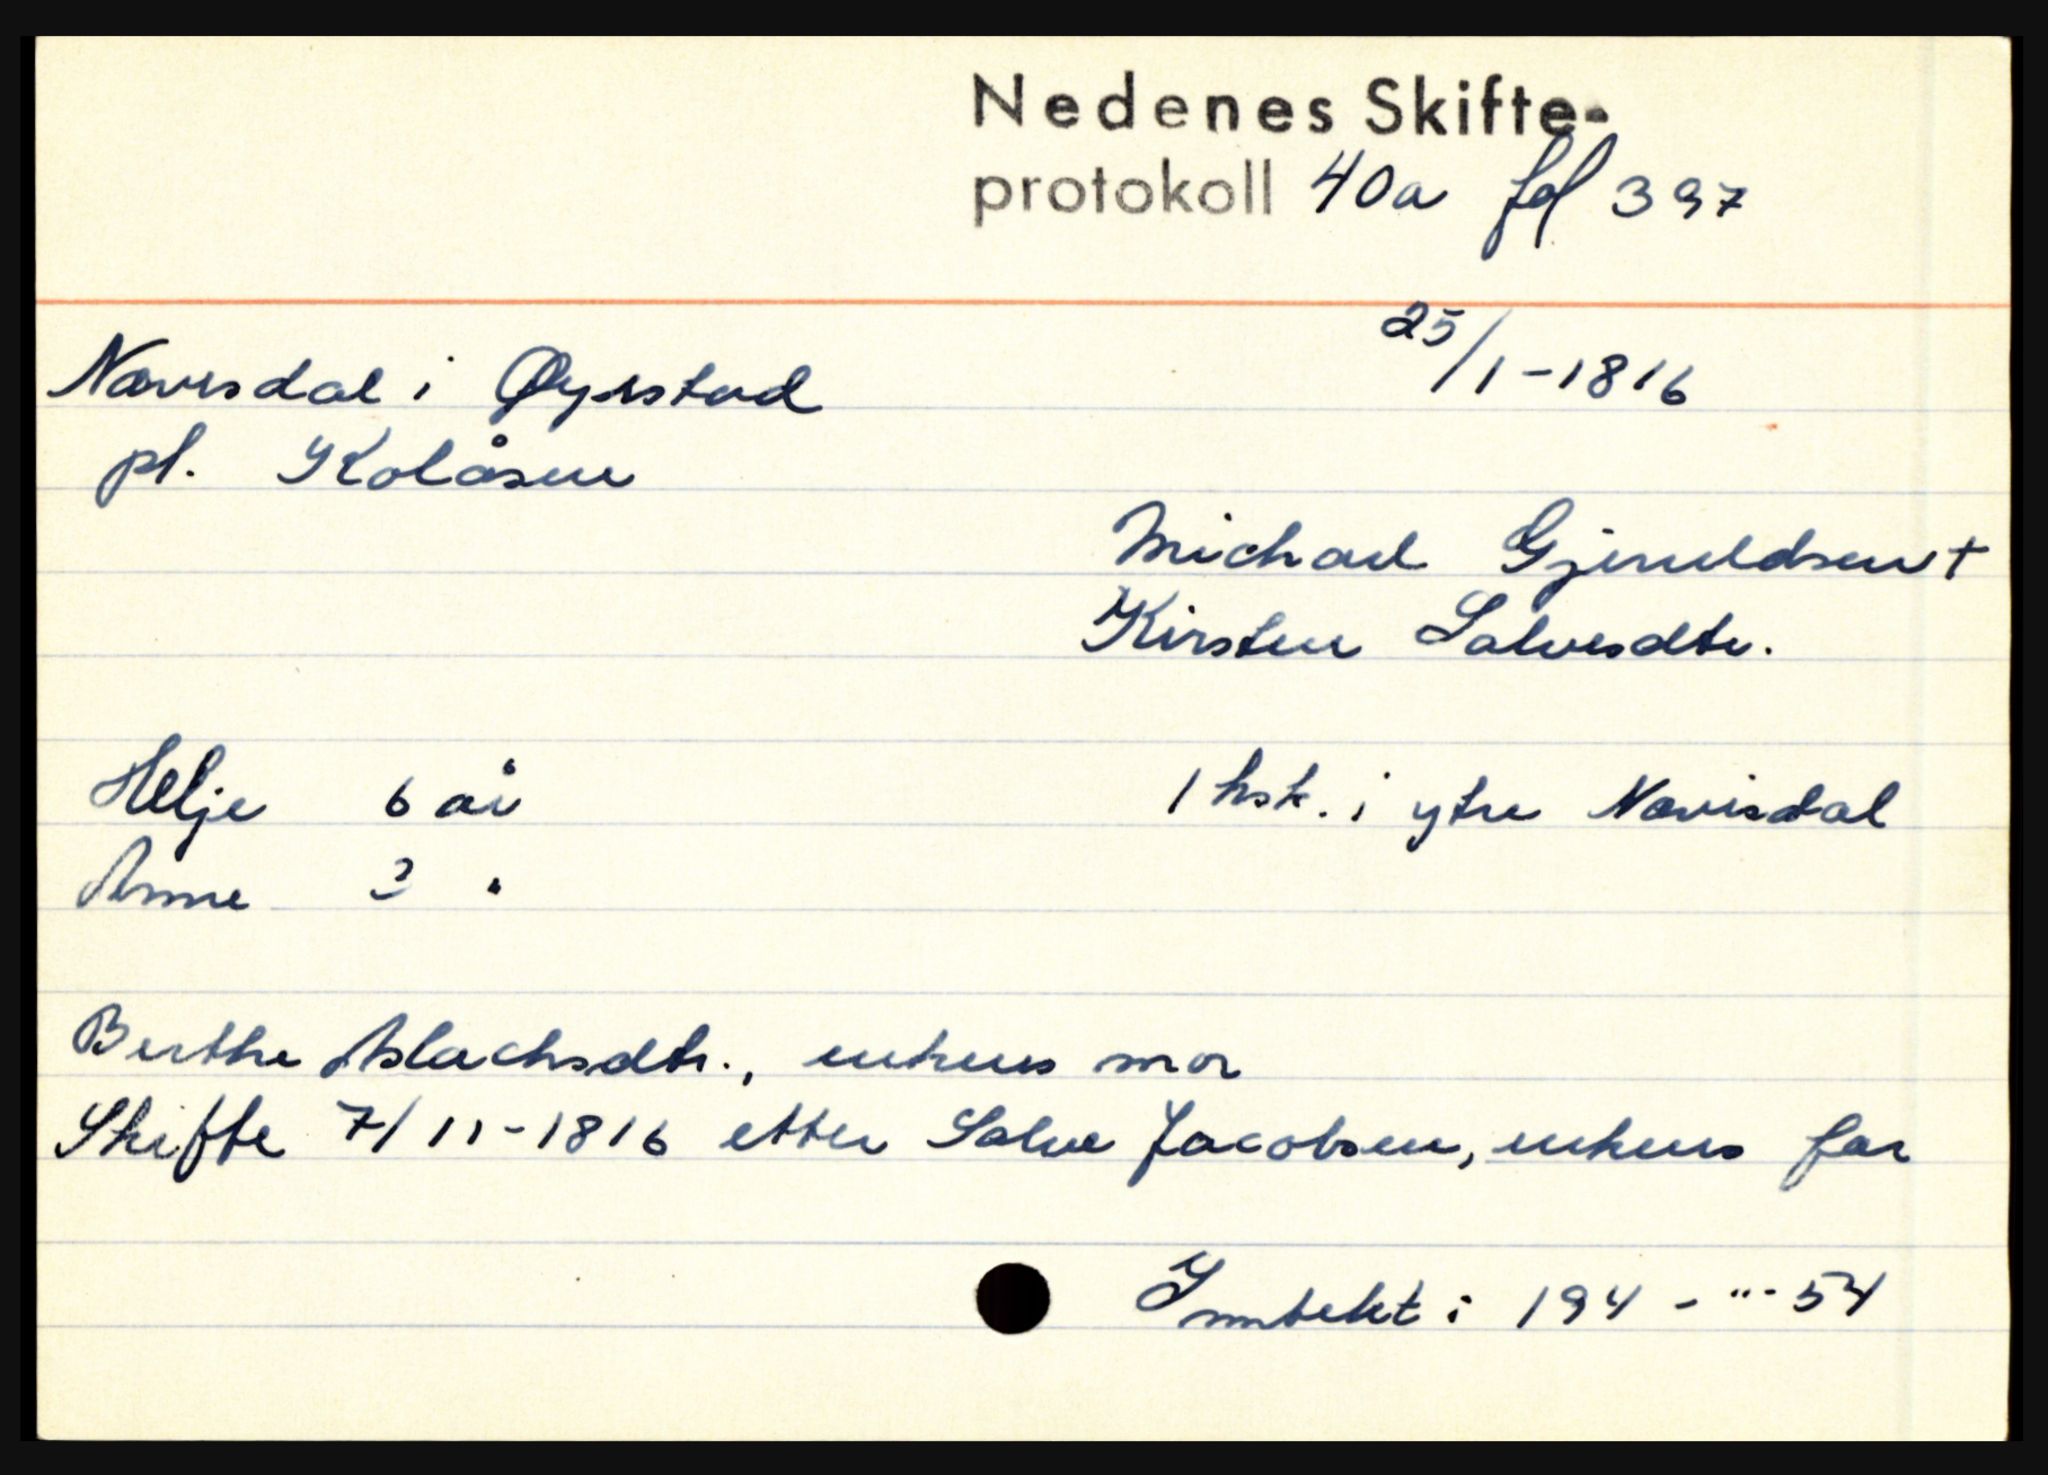 Nedenes Skifte-
protokoll 40a fol 397
25/1-1816
Nævesdal i Øyestad
pl. Kolåsen
Michael Gjeruldsen +
Kirsten Salvesdtr.
Helje 6 år
1 hsk. i ytre Nævisdal
Anne 3 "
Berthe Aslachsdtr., enkens mor
Skifte 7/11-1816 etter Salve Jacobsen, enkens far
Inntekt: 194 - "' - 54